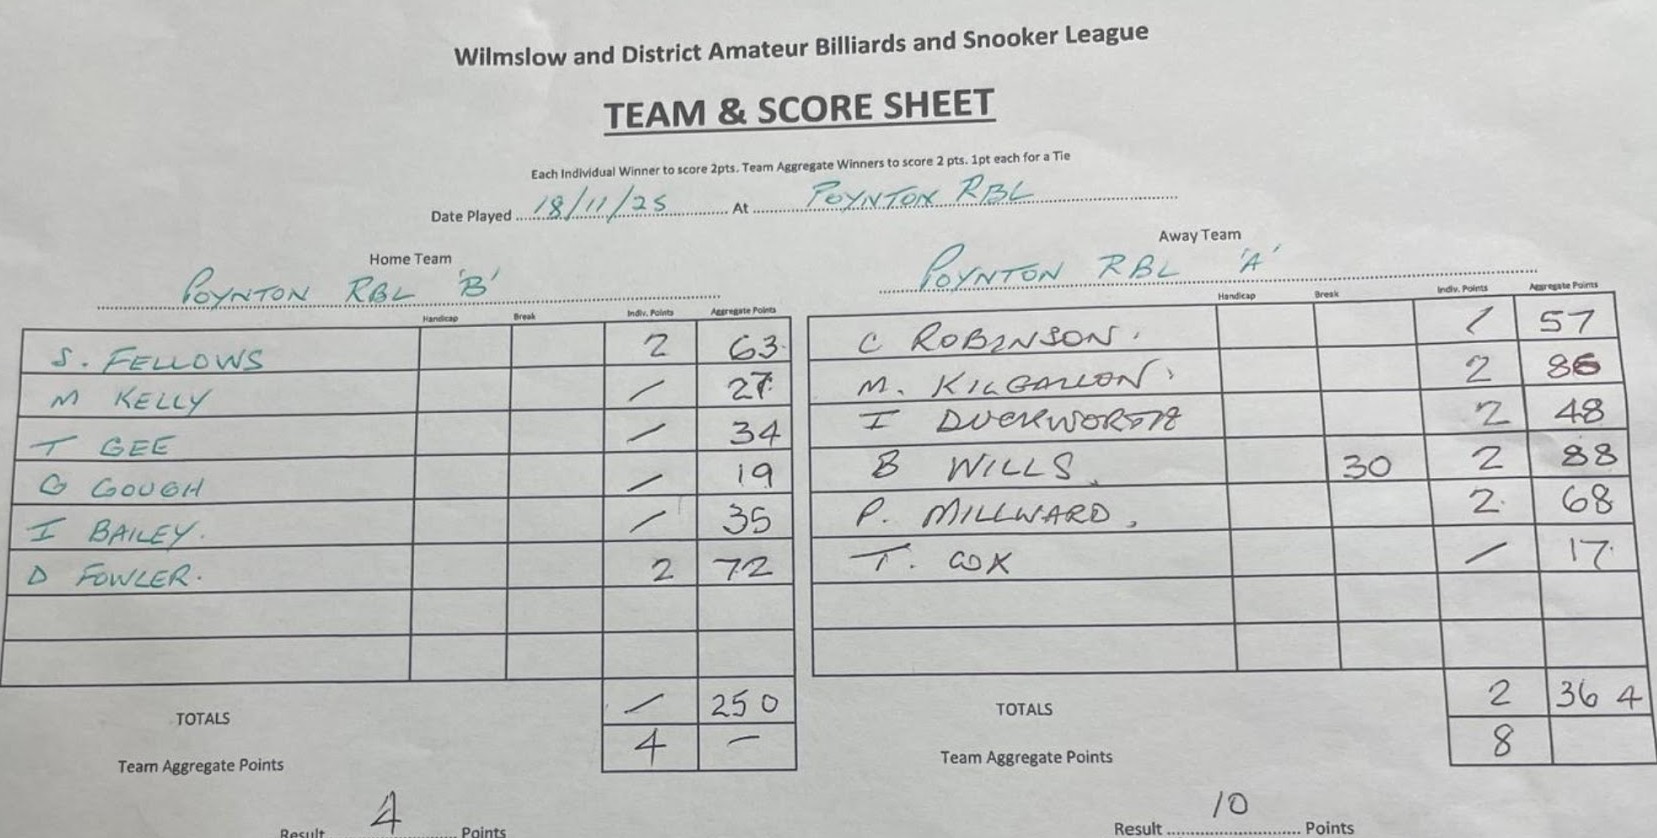 Wilmslow and District Amateur Billiards and Snooker League
TEAM & SCORE SHEET
Each Individual Winner to score 2pts. Team Aggregate Winners to score 2 pts. 1pt each for a Tie
Date Played 18/11/25 At POYNTON RBL
Home Team
POYNTON RBL 'B'
Handicap Break Indiv. Points Aggregate Points
S. FELLOWS 2 63
M KELLY / 27
T GEE / 34
G GOUGH / 19
I BAILEY. / 35
D FOWLER. 2 72
TOTALS / 250
Team Aggregate Points 4 —
Result 4 Points
Away Team
POYNTON RBL 'A'
Handicap Break Indiv. Points Aggregate Points
C ROBINSON. / 57
M. KILGALLON 2 86
I DUCKWORTH 2 48
B WILLS. 30 2 88
P. MILLWARD. 2. 68
T. COX / 17.
TOTALS 2 364
Team Aggregate Points 8
Result 10 Points